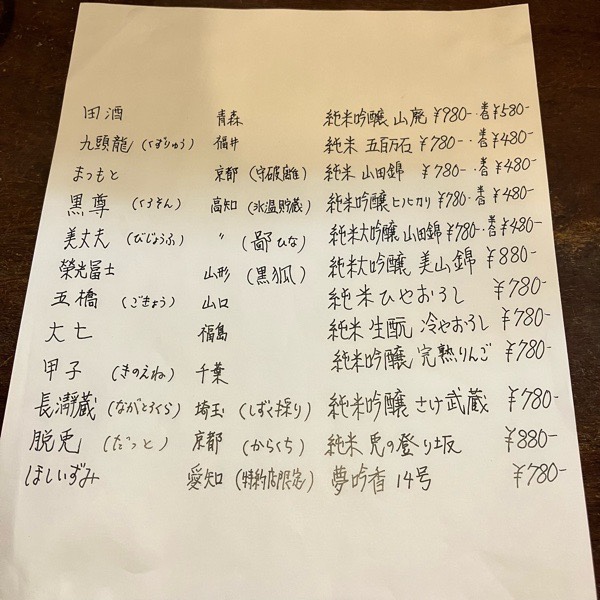 田酒 青森 純米吟醸 山廃 ¥980-・半¥580-
九頭龍(くずりゅう) 福井 純米 五百万石 ¥780-・半¥480-
まつもと 京都(守破離) 純米 山田錦 ¥780-・半¥480-
黒尊(くろそん) 高知(氷温貯蔵) 純米吟醸 ヒノヒカリ ¥780-・半¥480-
美丈夫(びじょうふ) 〃(鄙ひな) 純米大吟醸 山田錦 ¥780-・半¥480-
榮光冨士 山形(黒狐) 純米大吟醸 美山錦 ¥880-
五橋(ごきょう) 山口 純米 ひやおろし ¥780-
大七 福島 純米 生酛 冷やおろし ¥780-
甲子(きのえね) 千葉 純米吟醸 完熟りんご ¥780-
長瀞蔵(ながとろくら) 埼玉(しずく採り) 純米吟醸 さけ武蔵 ¥780-
脱兎(だっと) 京都(からくち) 純米 兎の登り坂 ¥880-
ほしいずみ 愛知(特約店限定) 夢吟香 14号 ¥780-